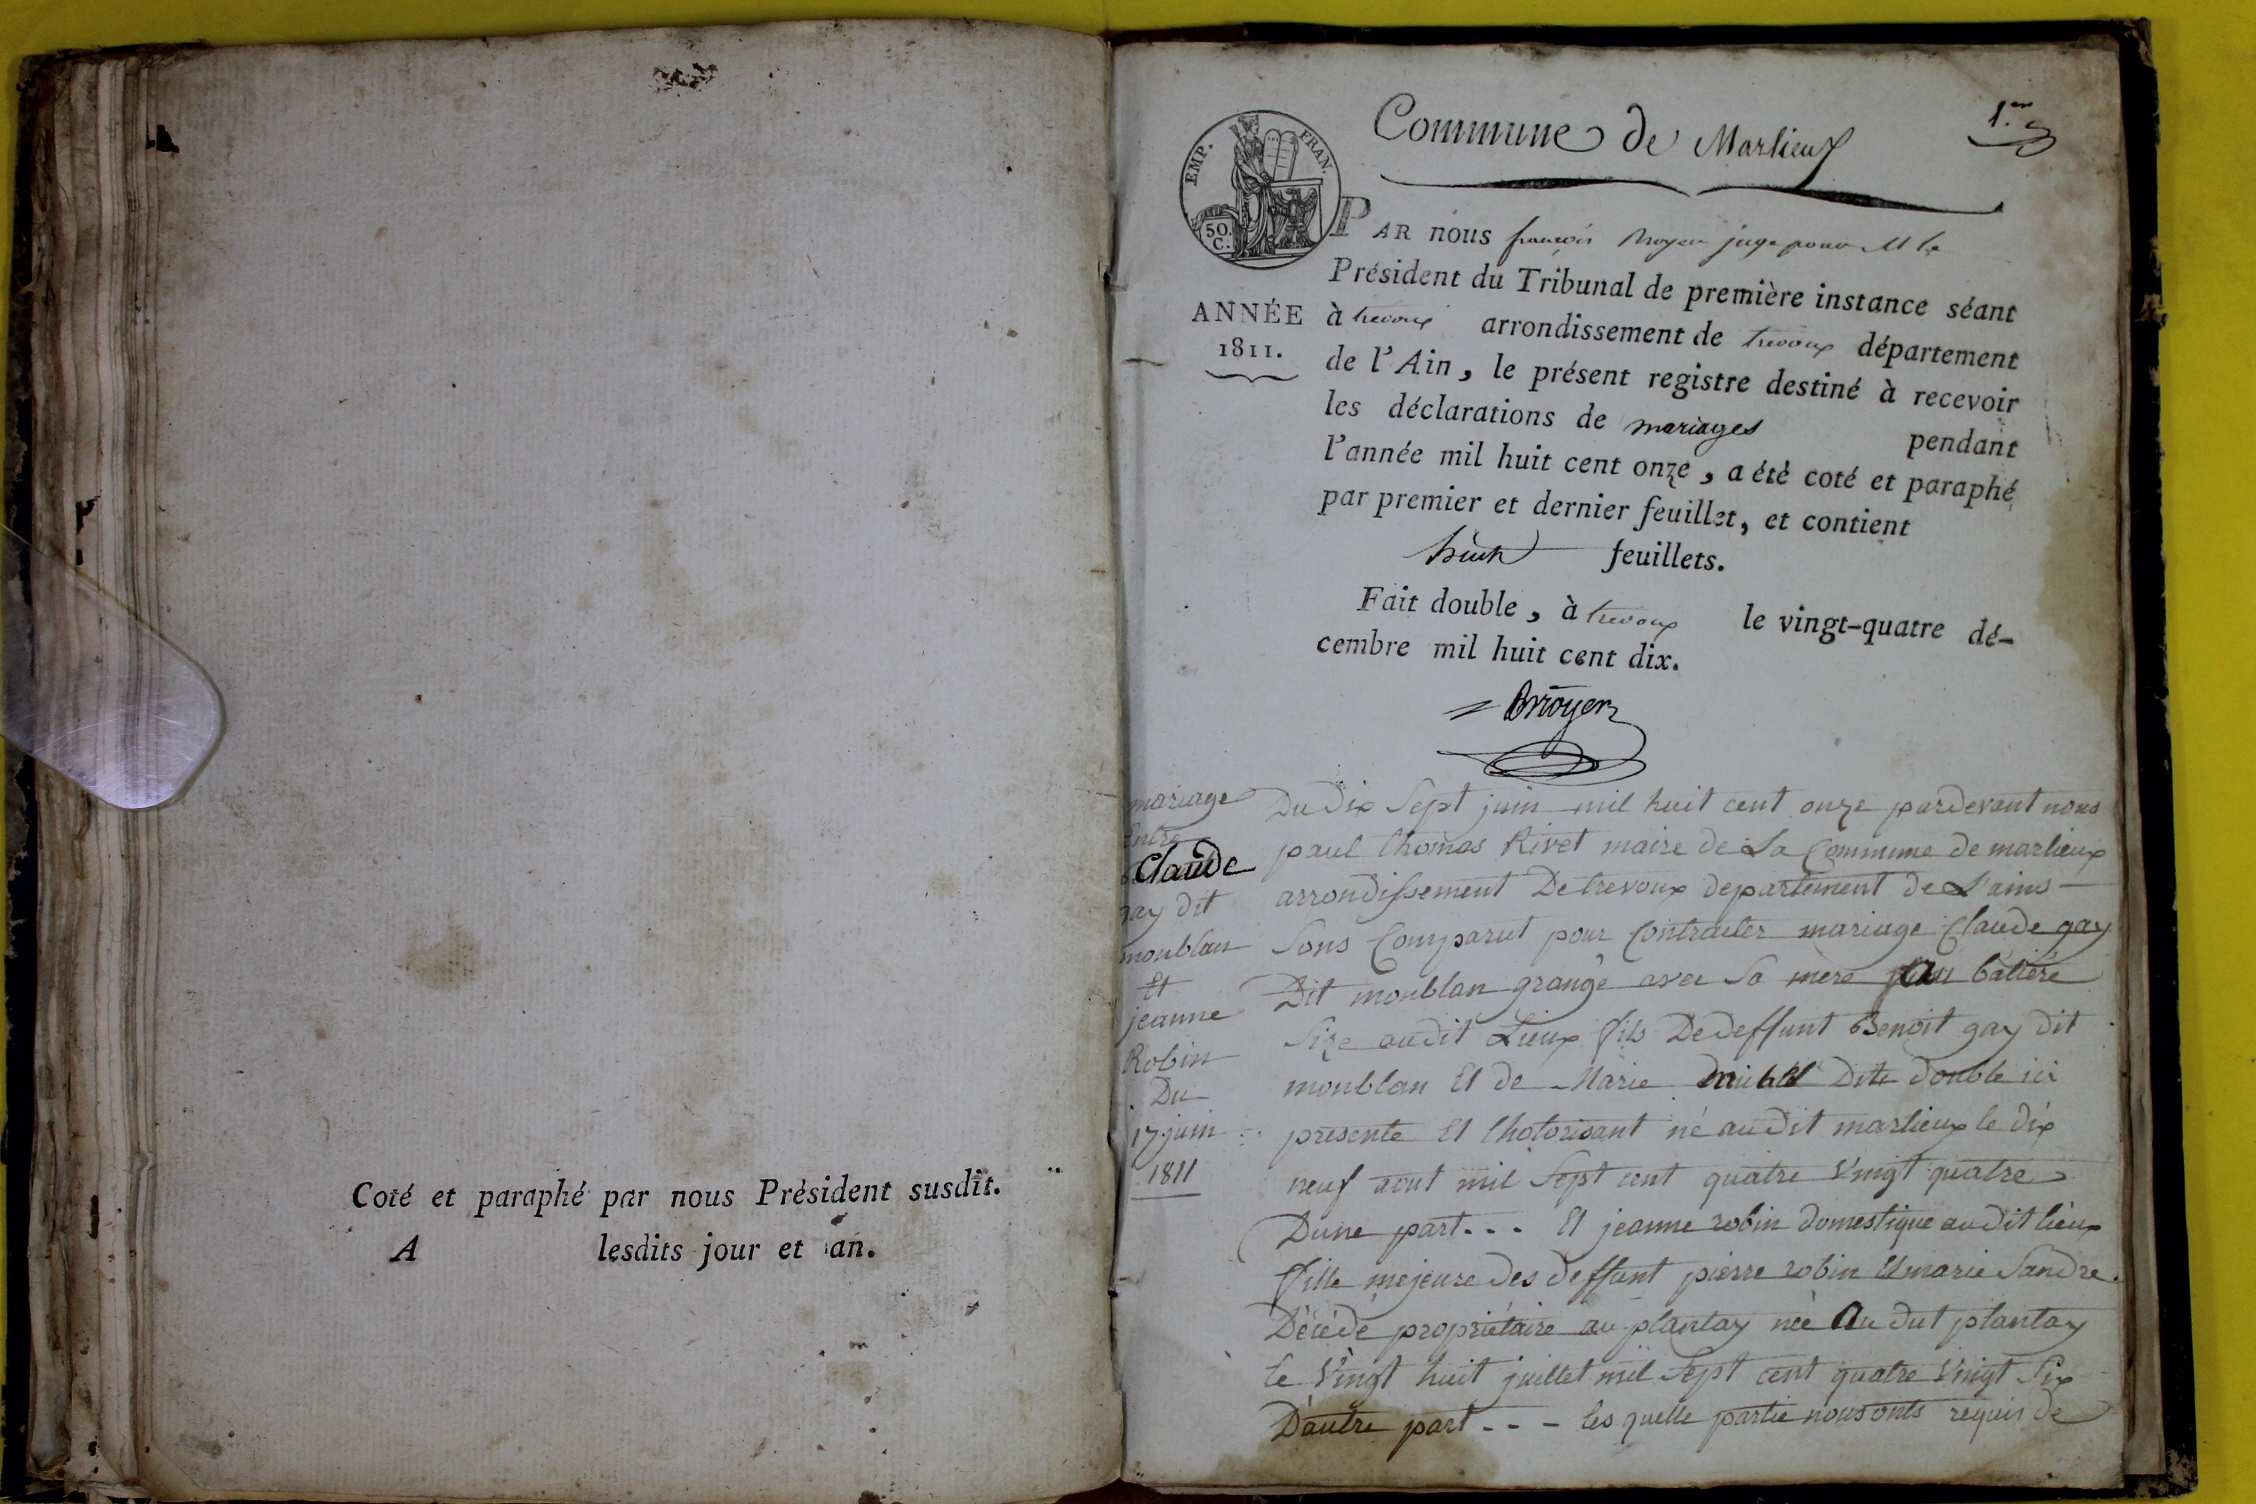 Coté et paraphé par nous Président susdit.
A lesdits jour et an.
Commune de Marlieux
1.er
EMP. FRAN.
50.
C.
ANNÉE
1811.
PAR nous françois Broyer juge pour M le
Président du Tribunal de première instance séant
à trevoux arrondissement de trevoux département
de l'Ain, le présent registre destiné à recevoir
les déclarations de mariages pendant
l'année mil huit cent onze, a été coté et paraphé
par premier et dernier feuillet, et contient
huit feuillets.
Fait double, à trevoux le vingt-quatre dé-
cembre mil huit cent dix.
Broyer
mariage
Entre
Claude
gay dit
monblan
Et
jeanne
Robin
Du
17 juin
1811
Du dix Sept juin mil huit cent onze pardevant nous
paul thomas Rivet maire de La Commune de marlieux
arrondissement De trevoux departement de L'ains
Sons Comparut pour Contracter mariage Claude gay
Dit monblan grangé avec Sa mère
Size audit Lieux fils De deffunt Benoit gay dit
monblan Et de Marie Dite double ici
presente Et Lhotorisant né audit marlieux le dix
neuf aout mil Sept cent quatre Vingt quatre
Dune part... Et jeanne robin domestique audit lieux
fille mejeure des deffunt pierre robin Et marie Sandre
Décédé propriétaire au plantay née Au dut plantay
le Vingt huit juillet mil Sept cent quatre Vingt Six
D'autre part - - - les quelle partie nous onts requis de